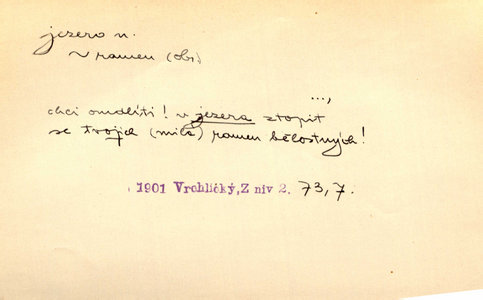 jezero n.
v ramen (obr.)
...,
chci omdlíti! v jezera ztopit
se tvojich (milá) ramen bělostných!
1901 Vrchlický, Z niv 2. 73, 7.